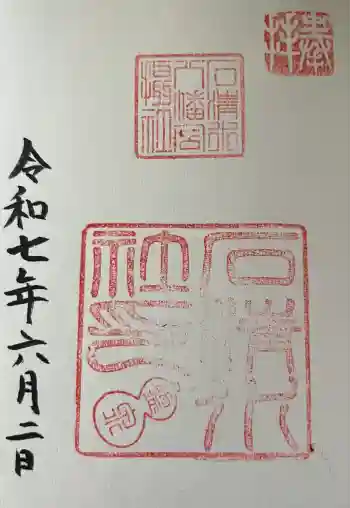 奉拝
石清水
八幡宮
摂社
石清水社
令和七年六月二日